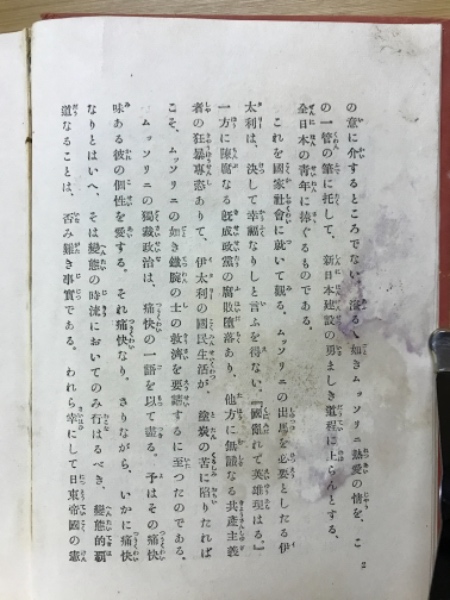 の意に介するところでない。溢るゝ如きムッソリニ熱愛の情を、こ
の一管の筆に托して、新日本建設の勇ましき道程に上らんとする、
全日本の青年に捧ぐるものである。
これを國家社會に就いて觀る。ムッソリニの出馬を必要としたる伊
太利は、決して幸福なりしと言ふを得ない。『國亂れて英雄現はる。』
一方に陳腐なる既成政黨の腐敗墮落あり、他方に無謀なる共產主義
者の狂暴專恣ありて、伊太利の國民生活が、塗炭の苦に陷りたれば
こそ、ムッソリニの如き鐵腕の士の救濟を要請するに至つたのである。
ムッソリニの獨裁政治は、痛快の一語を以て盡る。予はその痛快
味ある彼の個性を愛する。それ痛快なり、さりながら、いかに痛快
なりとはいへ、そは變態の時流においてのみ行はるべき、變態的覇
道なることは、否み難き事實である。われら幸にして日東帝國の憲
2